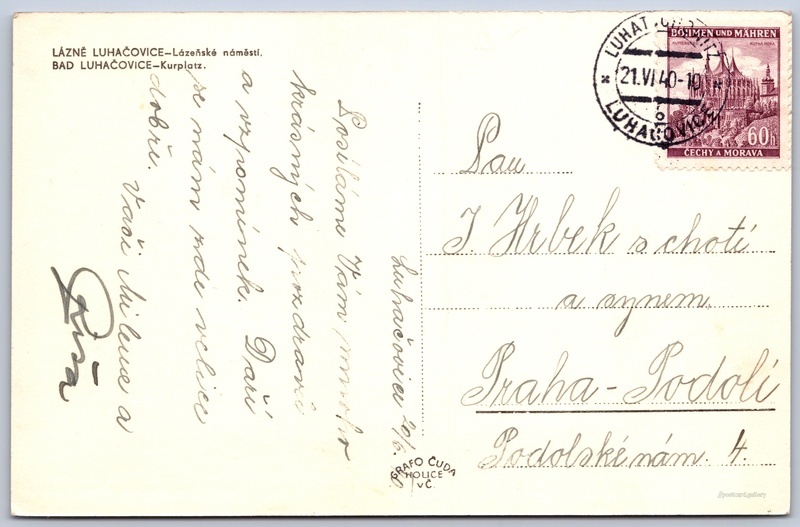 LÁZNĚ LUHAČOVICE—Lázeňské náměstí.
BAD LUHAČOVICE—Kurplatz.
Luhačovice 20/6.
Posíláme Vám mnoho
krásných pozdravů
a vzpomínek. Daří
se nám zde velice
dobře. Vaši Milena a
Ríša
GRAFO ČUDA
HOLICE
v Č.
LUHATSCHOWITZ
21.VI 40-10
LUHAČOVICE
BÖHMEN UND MÄHREN
60h
ČECHY A MORAVA
Pan
J. Hrbek s chotí
a synem
Praha-Podolí
Podolské nám. 4.